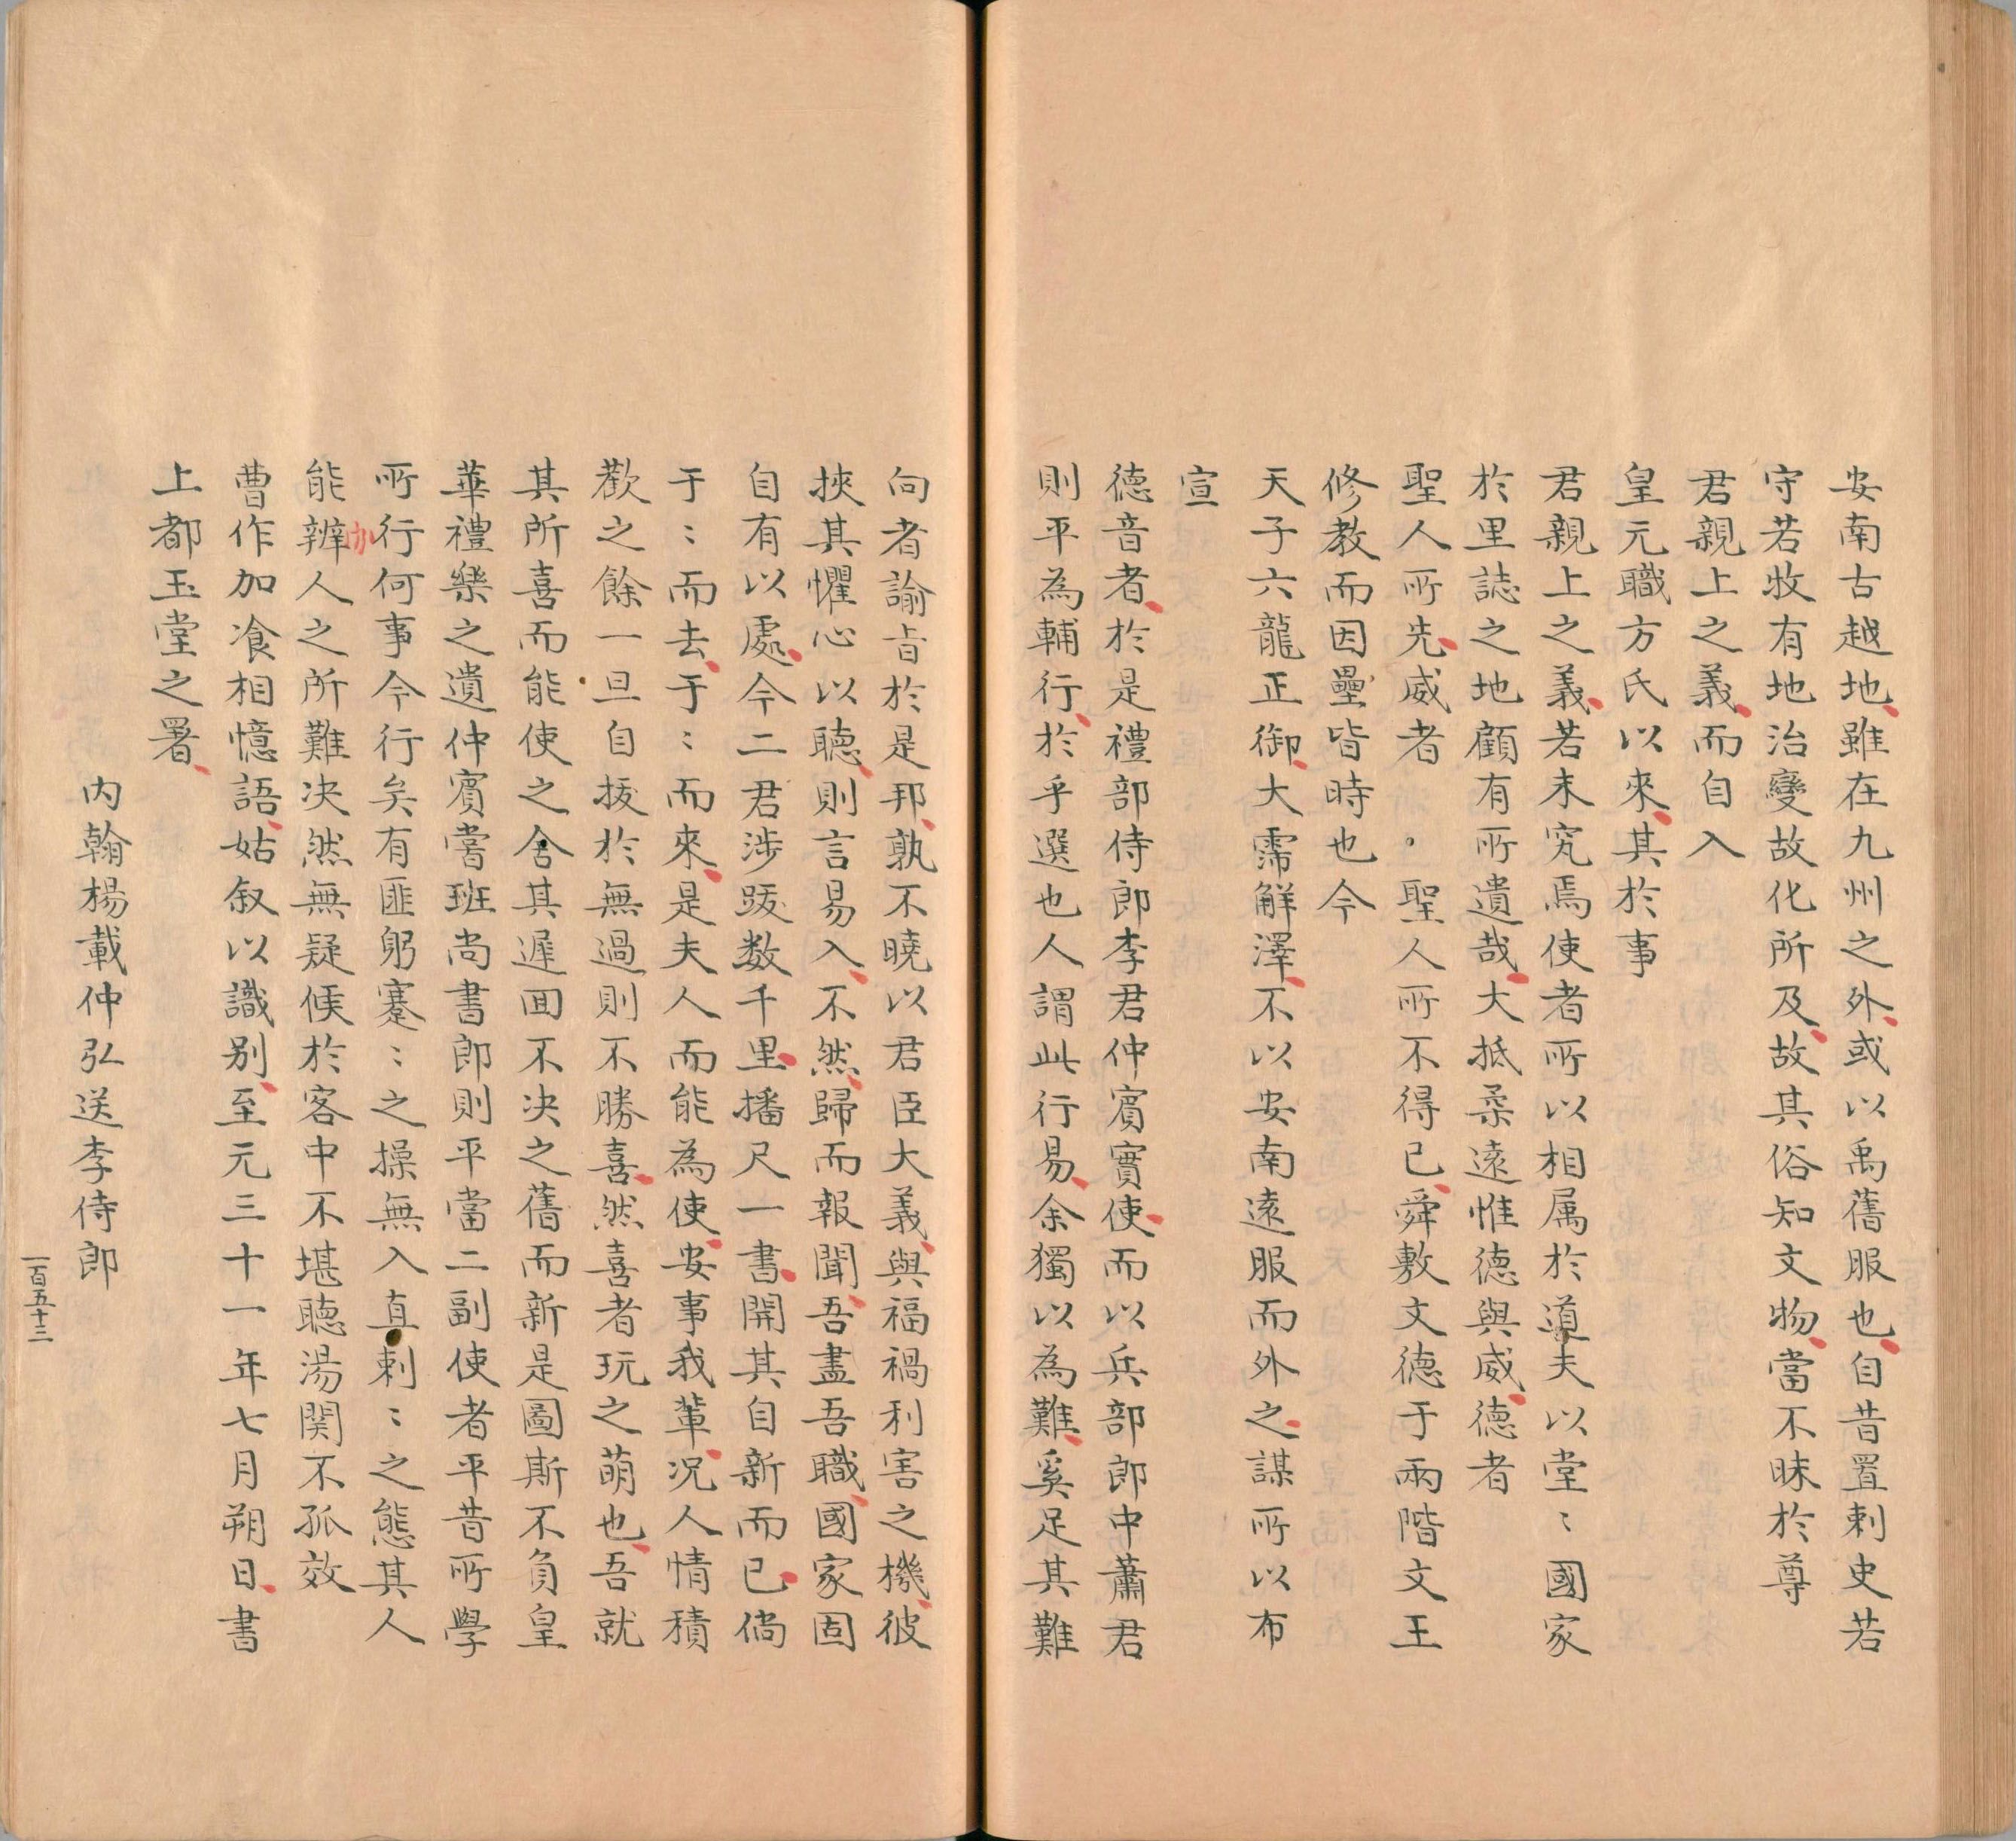 安南古越地雖在九州之外或以禹舊服也自昔置刺史若
守若牧有地治變故化所及故其俗知文物當不昧於尊
君親上之義而自入
皇元職方氏以來其於事
君親上之義若未究焉使者所以相属於道夫以堂〻國家
於里誌之地顧有所遺哉大抵柔遠惟德與威德者
聖人所先威者。聖人所不得已舜敷文德于兩階文王
修教而因壘皆時也今
天子六龍正御大霈解澤不以安南遠服而外之謀所以布
宣
德音者於是禮部侍郎李君仲賔實使而以兵部郎中蕭君
則平為輔行於乎選也人謂此行易余獨以為難奚足其難
向者諭旨於是邦孰不曉以君臣大義與福禍利害之機彼
挾其懼心以聽則言易入不然歸而報聞吾盡吾職國家固
自有以處今二君涉跋数千里播尺一書開其自新而已倘
于〻而去于〻而來是夫人而能為使安事我輩况人情積
歡之餘一旦自拔於無過則不勝喜然喜者玩之萌也吾就
其所喜而能使之舍其遲回不决之舊而新是圖斯不負皇
華禮樂之遺仲賔嘗班尚書郎則平當二副使者平昔所學
所行何事今行矣有匪躬蹇〻之操無入直剌〻之態其人
能辦人之所難决然無疑候於客中不堪聽湯関不孤效
曹作加飡相憶語姑叙以識别至元三十一年七月朔日書
上都玉堂之署
内翰楊載仲弘送李侍郎
一百五十三